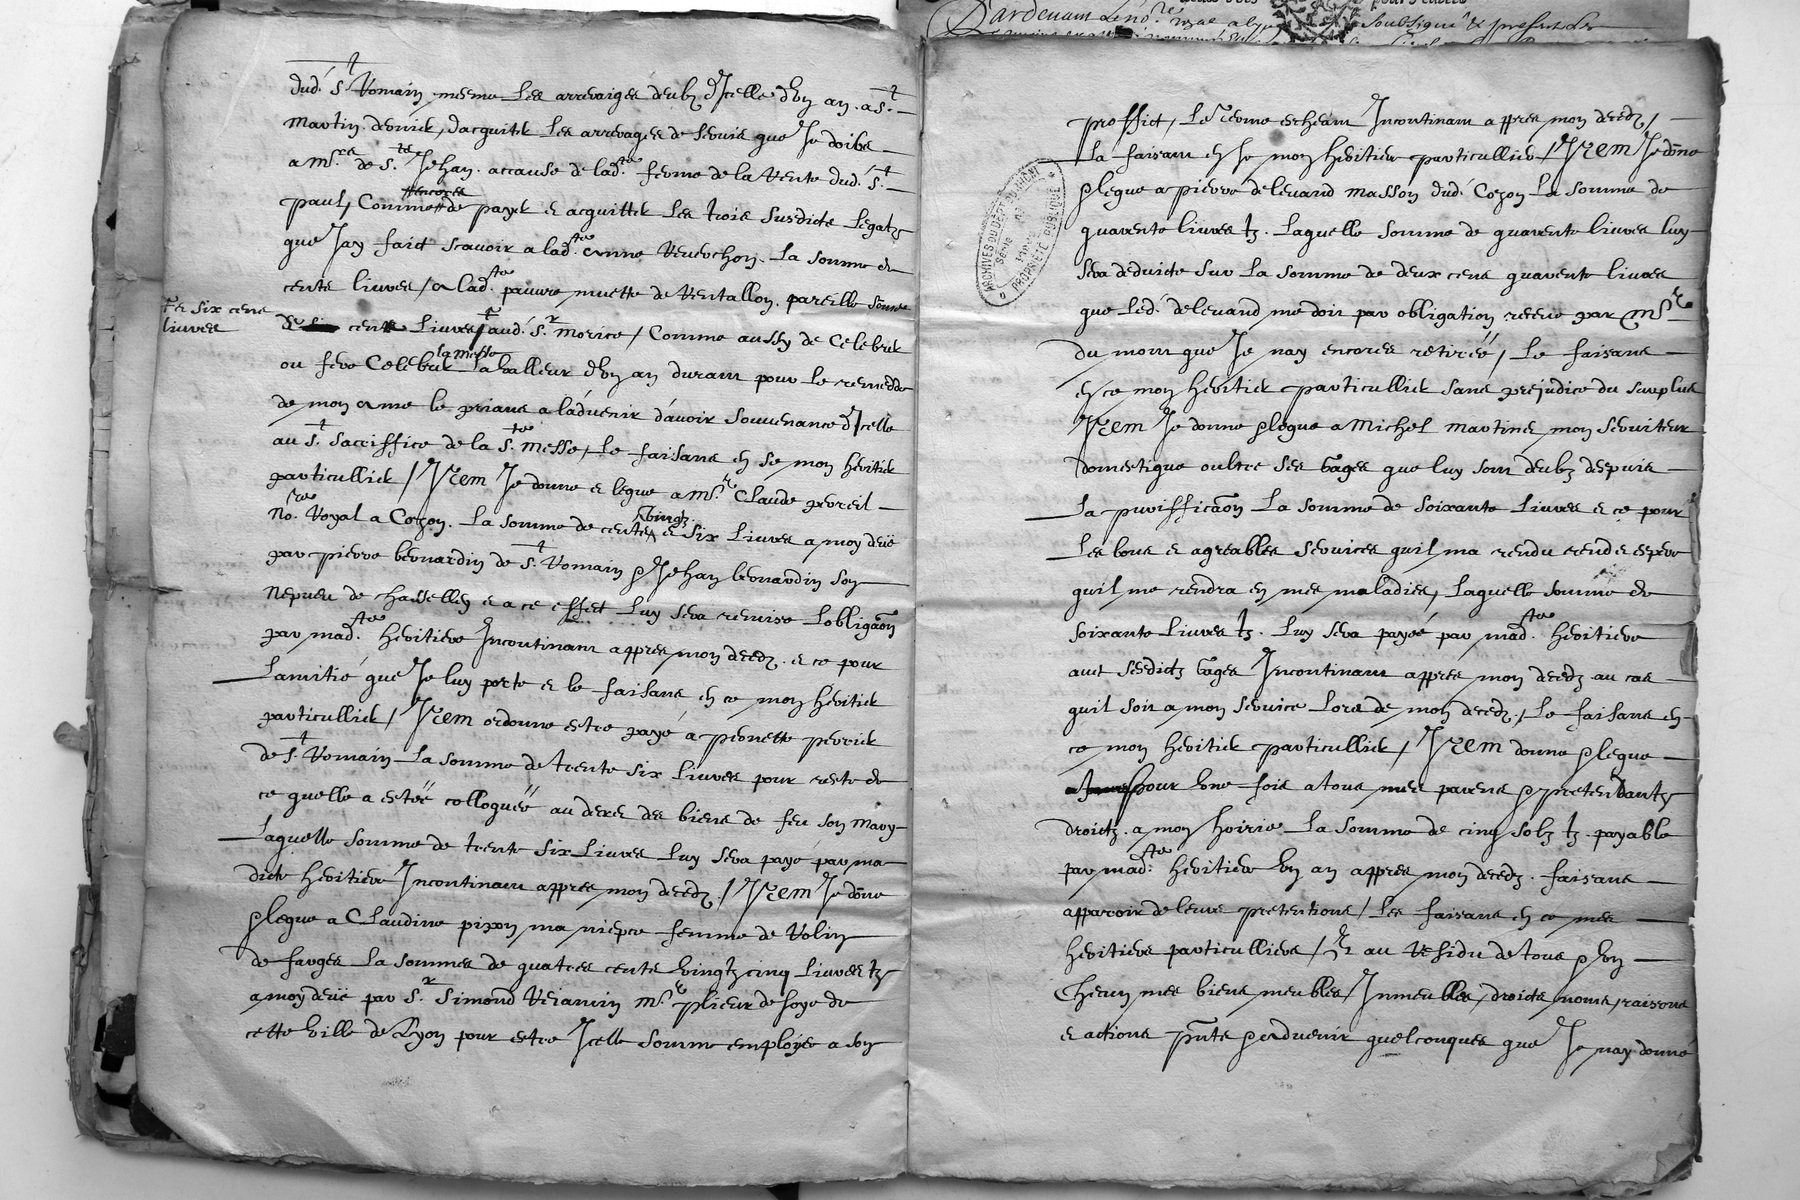 dud. St Romain mesme Les arreraiges deubz d'Jcelle d'Vn an a St
Martin dernier, dacquiter Les arrerages de servis que Je doibs
a Mrs de St Jehan accause de lad.te ferme de la Rente dud. St
encores
paul, Comme de payer e acquitter Les trois susdicts Legatz
que Jay faict scavoir a lad.te anne Reverchon La somme de
cents livres, a lad.te pauvre muette de Rentallon pareille somme
Et six cens
livres
de cents Livres, Et aud. Sr Morice, Comme aussy de Celebrer
ou fere Celebrer la Messe a balleur d'Vn an durant pour Le remedde
de mon ame le priant a l'advenir d'avoir souvenance d'Jcelle
au St sacriffice de la Ste Messe, Le faisant en se mon heritier
particullier, JTEM Je donne e legue a Mre Claude
No.re Royal a Cozon La somme de cents vingtz e six Livres a moy deüe
par pierre bernardin de St Romain e Jehan bernardin son
Nepveu de e a ce effect Luy sera remise L'obligaon
par mad.te heritiere Jncontinant appres mon decedz e ce pour
L'amitié que Je luy porte e le faisant en ce mon heritier
particullier, JTEM ordonne estre payé a pernette perrier
de St Romain La somme de trente six livres pour reste de
ce quelle a estéé colloquéé au decret des biens de feu son Mary
Laquelle somme de trente six Livres Luy sera payé par ma
dicte heritiere Jncontinant appres mon decedz, JTEM Je done
e legue a Claudine pixon ma niepce femme de Rolin
de farges La sommes de quatres cents vingtz cinq Livres tz
a moy deüe par Sr Simond Rejanin Mre plieur de soye de
cette ville de Lyon pour estre Jcelle somme employée a son
proffict, Le terme escheant Jncontinant appres mon decedz,
La faisant en se mon heritiere particulliere, JTEM Je done
e legue a pierre delevard masson dud. Cozon La somme de
quarente livres tz. Laquelle somme de quarente livres luy
sera deduicte sur La somme de deux cens quarente livres
que Led. delevard me doit par obligation receue par Mre
du moins que Je nay encores retiréé, Le faisant
en ce mon heritier particullier sans prejudice du surplus
JTEM Je donne e legue a Michel Martines mon serviteur
domestique oultre ses Gages que luy sont deubz despuis
La puriffiscaon La somme de soixante Livres e ce pour
Les bons e agreables services quil ma rendu rend e espere
quil me rendra en mes maladies, Laquelle somme de
soixante Livres tz. Luy sera payéé par mad.te heritiere
avec sesdictz Gages Jncontinant appres mon decedz au cas
quil soit a mon service Lors de mon decedz, Le faisant en
ce mon heritier particullier, JTEM donne e legue
pour Vne fois a tous mes parens e pretendantz
droictz a mon hoirie La somme de cinq solz tz. payable
par mad.te heritiere Vn an appres mon decedz faisant
apparoir de leurs pretentions, Les faisant en ce mes
heritiers particulliers, Et au Residu de tous e Vn
Checun mes biens meubles, Jnmeubles, droicts noms, raisons
e actions pnts e advenir quelconques que Je nay donné
ARCHIVES DU DÉPT DU MONT
PROPRIÉTÉ PUBLIQUE